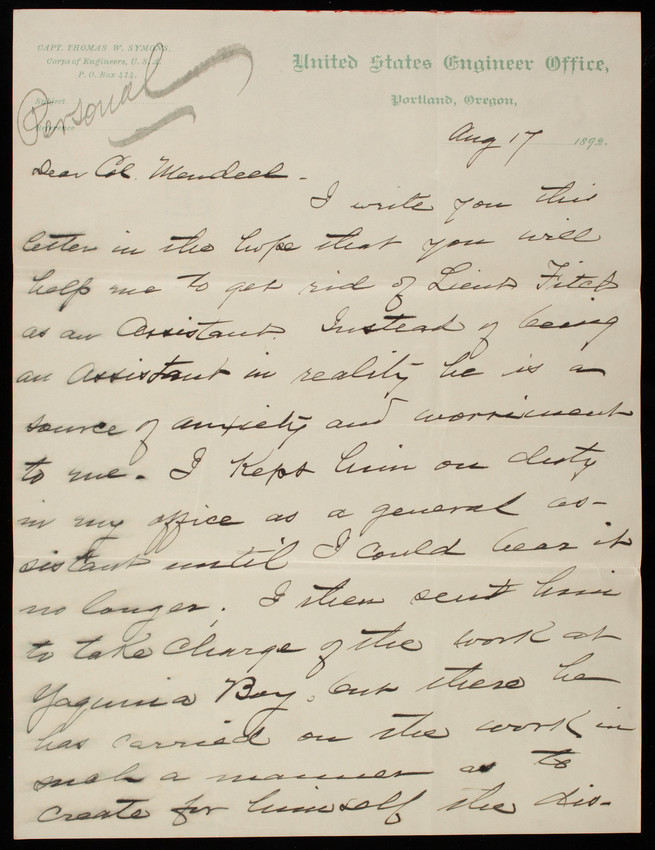 CAPT. THOMAS W. SYMONS,
Corps of Engineers, U. S. A.
P. O. Box 414.
Subject
Personal
United States Engineer Office,
Portland, Oregon,
Aug 17 1892.
Dear Col. Mendell -
I write you this
letter in the hope that you will
help me to get rid of Lieut Fitch
as an Assistant. Instead of being
an assistant in reality he is a
source of anxiety and worriment
to me. I kept him on duty
in my office as a general as-
sistant until I could bear it
no longer. I then sent him
to take charge of the work at
Yaquina Bay, but there he
has carried on the work in
such a manner as to
create for himself the dis-